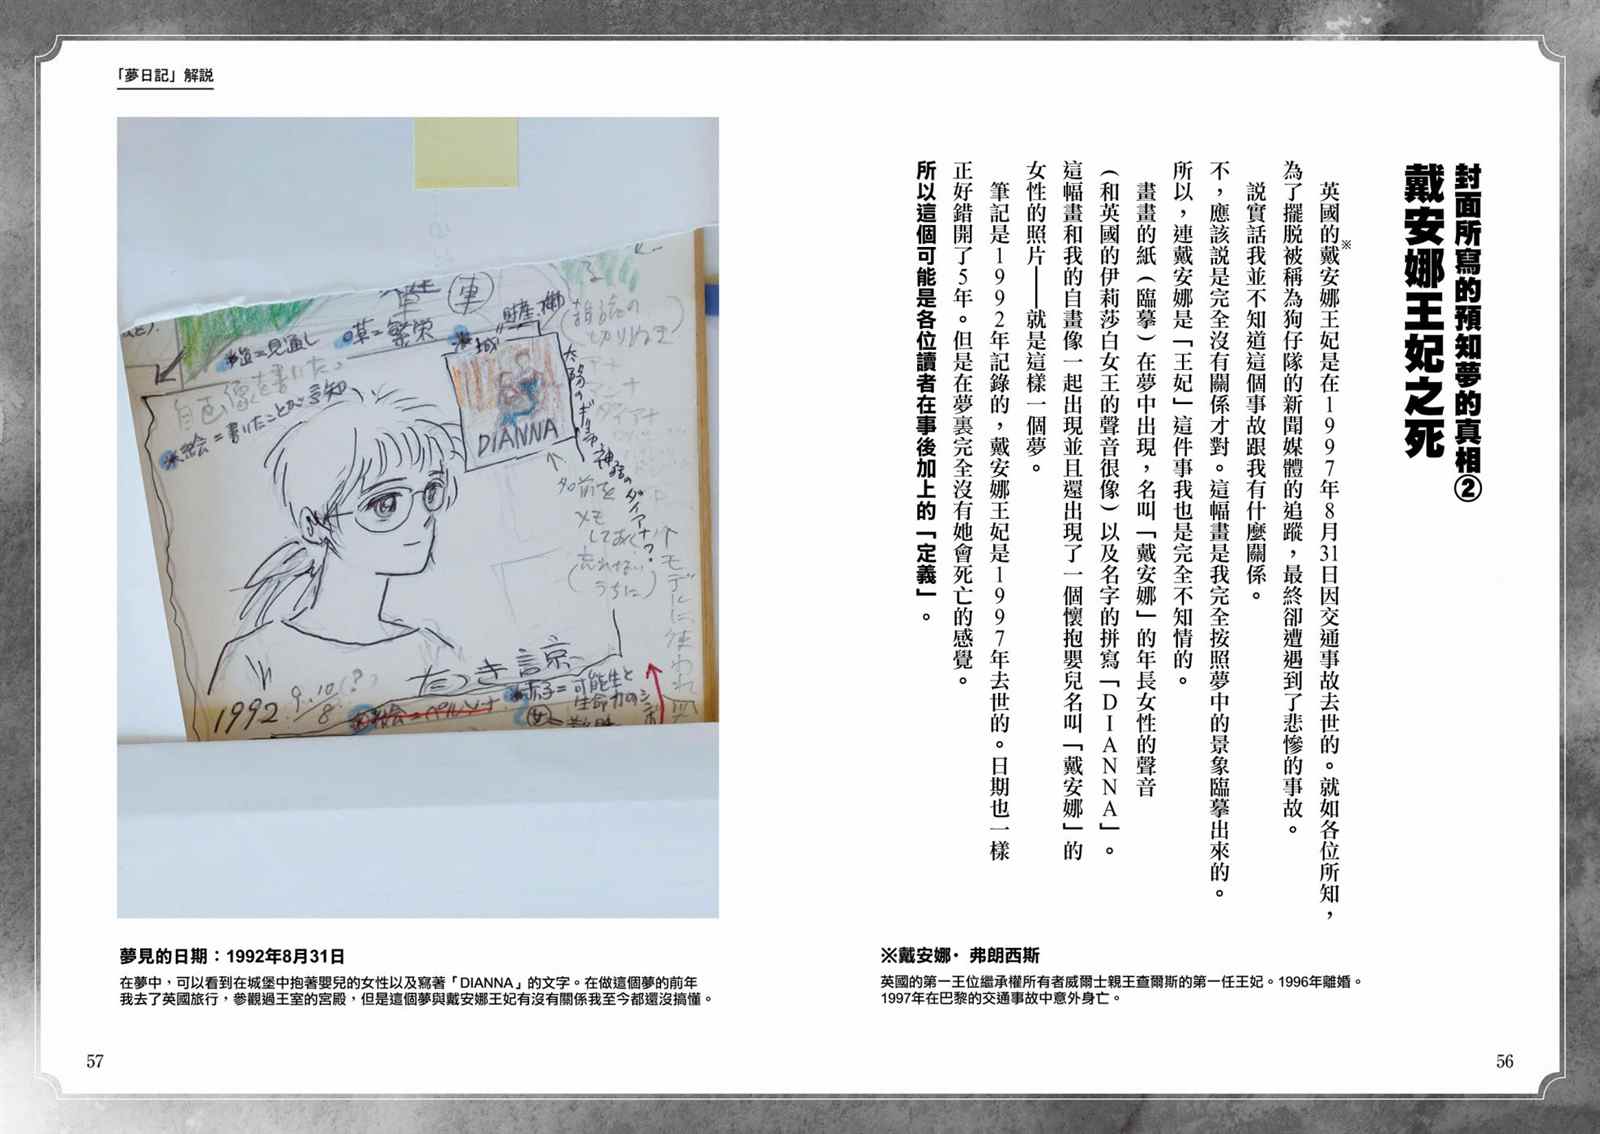 封面所寫的預知夢的真相②
戴安娜王妃之死
英國的戴安娜王妃※是在1997年8月31日因交通事故去世的。就如各位所知，
為了擺脱被稱為狗仔隊的新聞媒體的追蹤，最終卻遭遇到了悲慘的事故。
説實話我並不知道這個事故跟我有什麼關係。
不，應該説是完全沒有關係才對。這幅畫是我完全按照夢中的景象臨摹出來的。
所以，連戴安娜是「王妃」這件事我也是完全不知情的。
畫畫的紙（臨摹）在夢中出現，名叫「戴安娜」的年長女性的聲音
（和英國的伊莉莎白女王的聲音很像）以及名字的拼寫「DIANNA」。
這幅畫和我的自畫像一起出現並且還出現了一個懷抱嬰兒名叫「戴安娜」的
女性的照片——就是這樣一個夢。
筆記是1992年記錄的，戴安娜王妃是1997年去世的。日期也一樣
正好錯開了5年。但是在夢裏完全沒有她會死亡的感覺。
所以這個可能是各位讀者在事後加上的「定義」。
※戴安娜·弗朗西斯
英國的第一王位繼承權所有者威爾士親王查爾斯的第一任王妃。1996年離婚。
1997年在巴黎的交通事故中意外身亡。
56
「夢日記」解説
車
草=繁栄
道=見通し
財産
城
自画像を書いた
絵=書いたことが予知
DIANNA
太陽のギリシャ神話のダイアナ？
名前を
メモ
しておく
（忘れない
うちに）
モデルに使われ
たつき諒
1992
赤子=可能性と
生命力の
夢見的日期：1992年8月31日
在夢中，可以看到在城堡中抱著嬰兒的女性以及寫著「DIANNA」的文字。在做這個夢的前年
我去了英國旅行，參觀過王室的宮殿，但是這個夢與戴安娜王妃有沒有關係我至今都還沒搞懂。
57